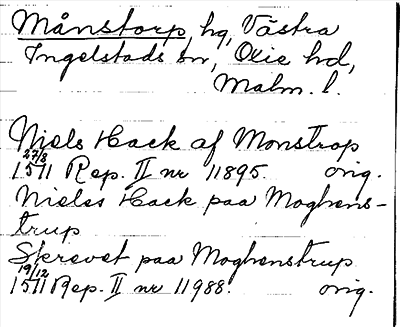 Månstorp, hg, Västra
Ingelstads sn, Oxie hd,
Malm. l.
Niels Hack af Monstrop
27/8
1511 Rep. II nr 11895. orig.
Nieles Hack paa Moghens-
trup
Skrevet paa Moghenstrup
19/12
1511 Rep. II nr 11988. orig.